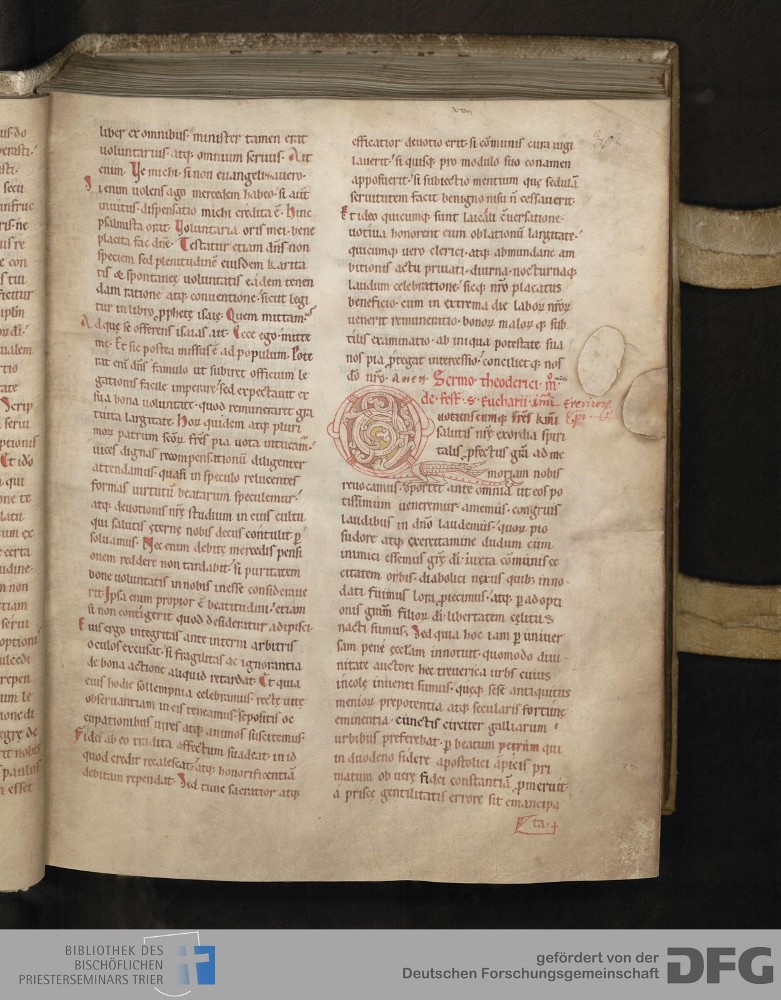 liber ex omnibus. minister tamen erat
voluntarius atq; omnium servus. Ait
enim. Ve michi si non evangelizavero.
Si enim volens ago mercedem habeo. si aut
invitus. dispensatio michi credita ē. Hinc
psalmista orat. Voluntaria oris mei bene
placita fac dn̄e. Testatur etiam dn̄s non
speciem sed plenitudinē eiusdem karita
tis & spontaneę voluntatis eadem tenen
dam ratione atq; conventione. sicut legi
tur in libro prophetę isaię. Quem mittam.
Ad quę se offerens isaias ait. Ecce ego. mitte
me. Et sic postea missus ē ad populum. Pote
rat eni dn̄s famulo ut subiret officium le
gationis facile imperare. sed expectavit ex
sua bona voluntate. quod remuneraret gra
tuita largitate. Horꝝ quidem atq; pluri
morꝝ patrum scōꝝ frēs pia vota
vices dignas recompensationū diligenter
attendamus. quasi in speculo relucentes
formas virtutū beatarum speculemur.
atq; devotionis nr̄ę studium in eius cultu
qui salutis ęternę nobis decus contulit p̄
solvamus. Nec enim debitę mercedis pensi
onem reddere non tardabit. si puritatem
bonę voluntatis in nobis inesse considerave
rit. Ipsa enim propior ē beatitudini. etiam
si non contigerit quod desideratur adipisci.
Eius ergo integritas ante interni arbitris
oculos excusat. si fragilitas ac ignorantia
de bona actione aliquid retardat. Et quia
eius hodie sollempnia celebramus. recte vite
observantiam in eis teneamus. sepositis oc
cupationibus vires atq; animos suscitemus.
Fidei ab eo tradita affectum suadeat. in id
quod credit recalescat. atq; honorificentiā
debitam rependat. Sed tunc sacratior atq;
efficatior devotio erit. si cōmunis cura vigi
laverit. si quisq; pro modulo suo conamen
apposuerit. si subiectio mentium quę sedulā
servitutem facit benigno nisu n̄ cessaverit.
Et ideo quicumq; sunt laicali cversatione.
votiva honorent eum oblationū largitate.
quicumq; vero clerici. atq; abmundane am
bitionis actu privati. diurna. nocturnaq;
laudum celebratione. sicq; nr̄o placatus
beneficio. cum in extrema die laborꝝ nr̄oꝝ
venerit remuneratio. bonorꝝ malorꝝ q; sub
tilis examinatio. ab iniqua potestate sua
nos pia p̄tegat intercessio. conciliet q; nos
dō nr̄o. Amen. Sermo theoderici. m̄
de fest. s. Eucharii. ep̄i
Q
uotienscumq; frēs km̄i
salutis nr̄ę exordia spiri
talis p̄fectus grā ad me
moriam nobis
revocamus. oportet ante omnia ut eos po
tissimum veneremur. amemus. congruis
laudibus in dn̄o laudemus. quoꝝ pio
sudore atq; exercitamine dudum cum
inimici essemus grę dī. iuxta cōmunis ce
citatem orbis. diabolici nexus quib; inno
dati fuimus lora p̄iecimus. atq; p̄ adopti
onis grām filioꝝ dī. libertatem cęlitus
nacti sumus. Sed quia hoc iam p̄ univer
sam penę ęcclam innotuit. quomodo divi
nitate auctore hec treverica urbs cuius
incolę inventi sumus. quęq; sese antiquitus
meniorꝝ prepotentia atq; secularis fortunę
eminentia. cunctis circiter galliarum
urbibus preferebat. p̄ beatum petrum qui
in duodeno sidere apostolici apicis pri
matum ob verę fidei constantiā p̄meruit.
a priscę gentilitatis errore sit emancipa
ta.
BIBLIOTHEK DES
BISCHÖFLICHEN
PRIESTERSEMINARS TRIER
gefördert von der
Deutschen Forschungsgemeinschaft
DFG